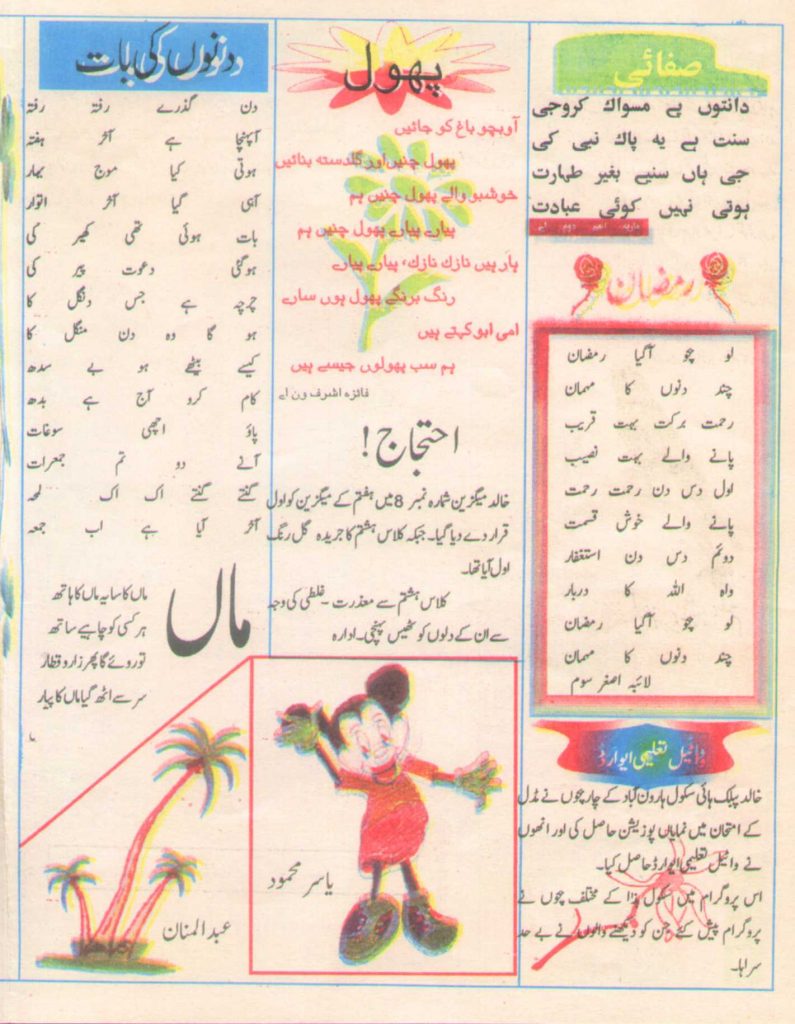 صفائی
دانتوں پے مسواک کروجی
سنت ہے یہ پاک نبی کی
جی ہاں سنیے بغیر طہارت
ہوتی نہیں کوئی عبادت
رمضان
لو چو آگیا رمضان
چند دنوں کا مہمان
رحمت برکت بہت قریب
پانے والے بہت نصیب
اول دس دن رحمت رحمت
پانے والے خوش قسمت
دوئم دس دن استغفار
واہ اللہ کا دربار
لو چو آگیا رمضان
چند دنوں کا مہمان
لائبہ اصغر سوم
وائیل تعلیمی ایوارڈ
خالد پبلک ہائی سکول ہارون آباد کے چار چوں نے مڈل
کے امتحان میں نمایاں پوزیشن حاصل کی اور انھوں
نے وائیل تعلیمی ایوارڈ حاصل کیا۔
اس پروگرام میں سکول ہذا کے مختلف چوں نے
پروگرام پیش کئے جن کو دیکھنے والوں نے بے حد
سراہا۔
پھول
آوبچو باغ کو جائیں
پھول چنیں اور گلدستہ بنائیں
خوشبو والے پھول چنیں ہم
پیارے پیارے پھول چنیں ہم
ہار ہیں نازک نازک، پیارے پیارے
رنگ برنگے پھول ہوں سارے
امی ابو کہتے ہیں
ہم سب پھولوں جیسے ہیں
فائزہ اشرف ون اے
احتجاج!
خالد میگزین شمارہ نمبر 8 میں ہفتم کے میگزین کو اول
قرار دے دیا گیا۔ جبکہ کلاس ہشتم کا جریدہ گل رنگ
اول آیا تھا۔
کلاس ہشتم سے معذرت۔ غلطی کی وجہ
سے ان کے دلوں کو ٹھیس پہنچی۔ ادارہ
یاسر محمود
دنوں کی بات
دن گذرے رفتہ رفتہ
آپہنچا ہے آخر ہفتہ
ہوتی کیا موج بہار
آہی گیا آخر اتوار
بات ہوئی تھی کھیر کی
ہوگئی دعوت پیر کی
چرچہ ہے جس دنگل کا
ہو گا وہ دن منگل کا
کیسے بیٹھے ہو بے سدھ
کام کرو آج ہے بدھ
پاؤ اچھی سوغات
آنے دو تم جمعرات
گنتے گنتے اک اک لمحہ
آخر آیا ہے اب جمعہ
ماں
ماں کا سایہ ماں کا ہاتھ
ہر کسی کو چاہیے ساتھ
تو روئے گا پھر زار و قطار
سر سے اٹھ گیا ماں کا پیار
عبدالمنان